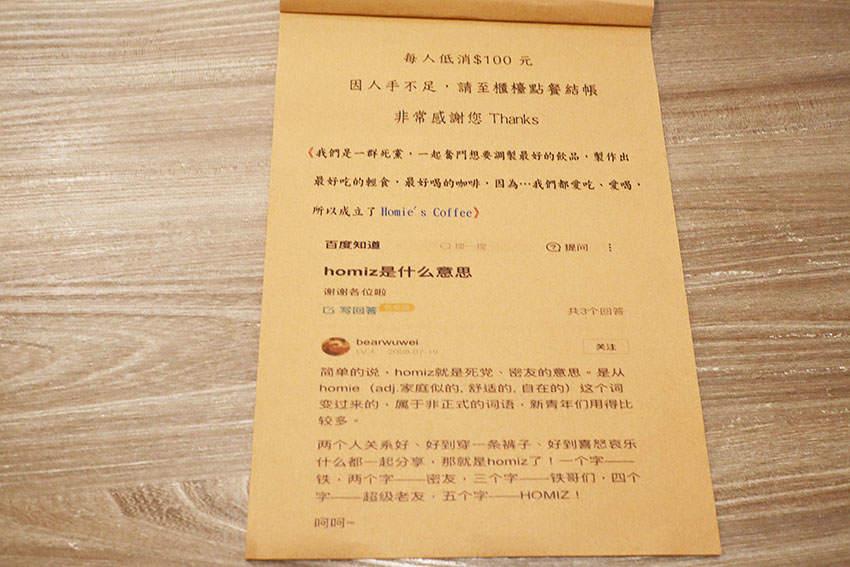 每人低消$100 元
因人手不足，請至櫃檯點餐結帳
非常感謝您 Thanks
《我們是一群死黨，一起奮鬥想要調製最好的飲品，製作出
最好吃的輕食，最好喝的咖啡，因為…我們都愛吃、愛喝，
所以成立了 Homie's Coffee》
百度知道 搜一搜 提问
homiz是什么意思
谢谢各位啦
写回答 共3个回答
bearwuwei 关注
2008-07-19
简单的说，homiz就是死党、密友的意思。是从
homie（adj.家庭似的, 舒适的, 自在的）这个词
变过来的，属于非正式的词语，新青年们用得比
较多。
两个人关系好、好到穿一条裤子、好到喜怒哀乐
什么都一起分享，那就是homiz了！一个字——
铁，两个字——密友，三个字——铁哥们，四个
字——超级老友，五个字——HOMIZ！
呵呵~